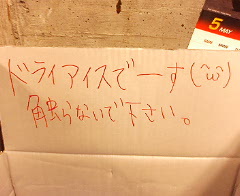 5 MAY
ドライアイスでーす(^ω^)
触らないで下さい。